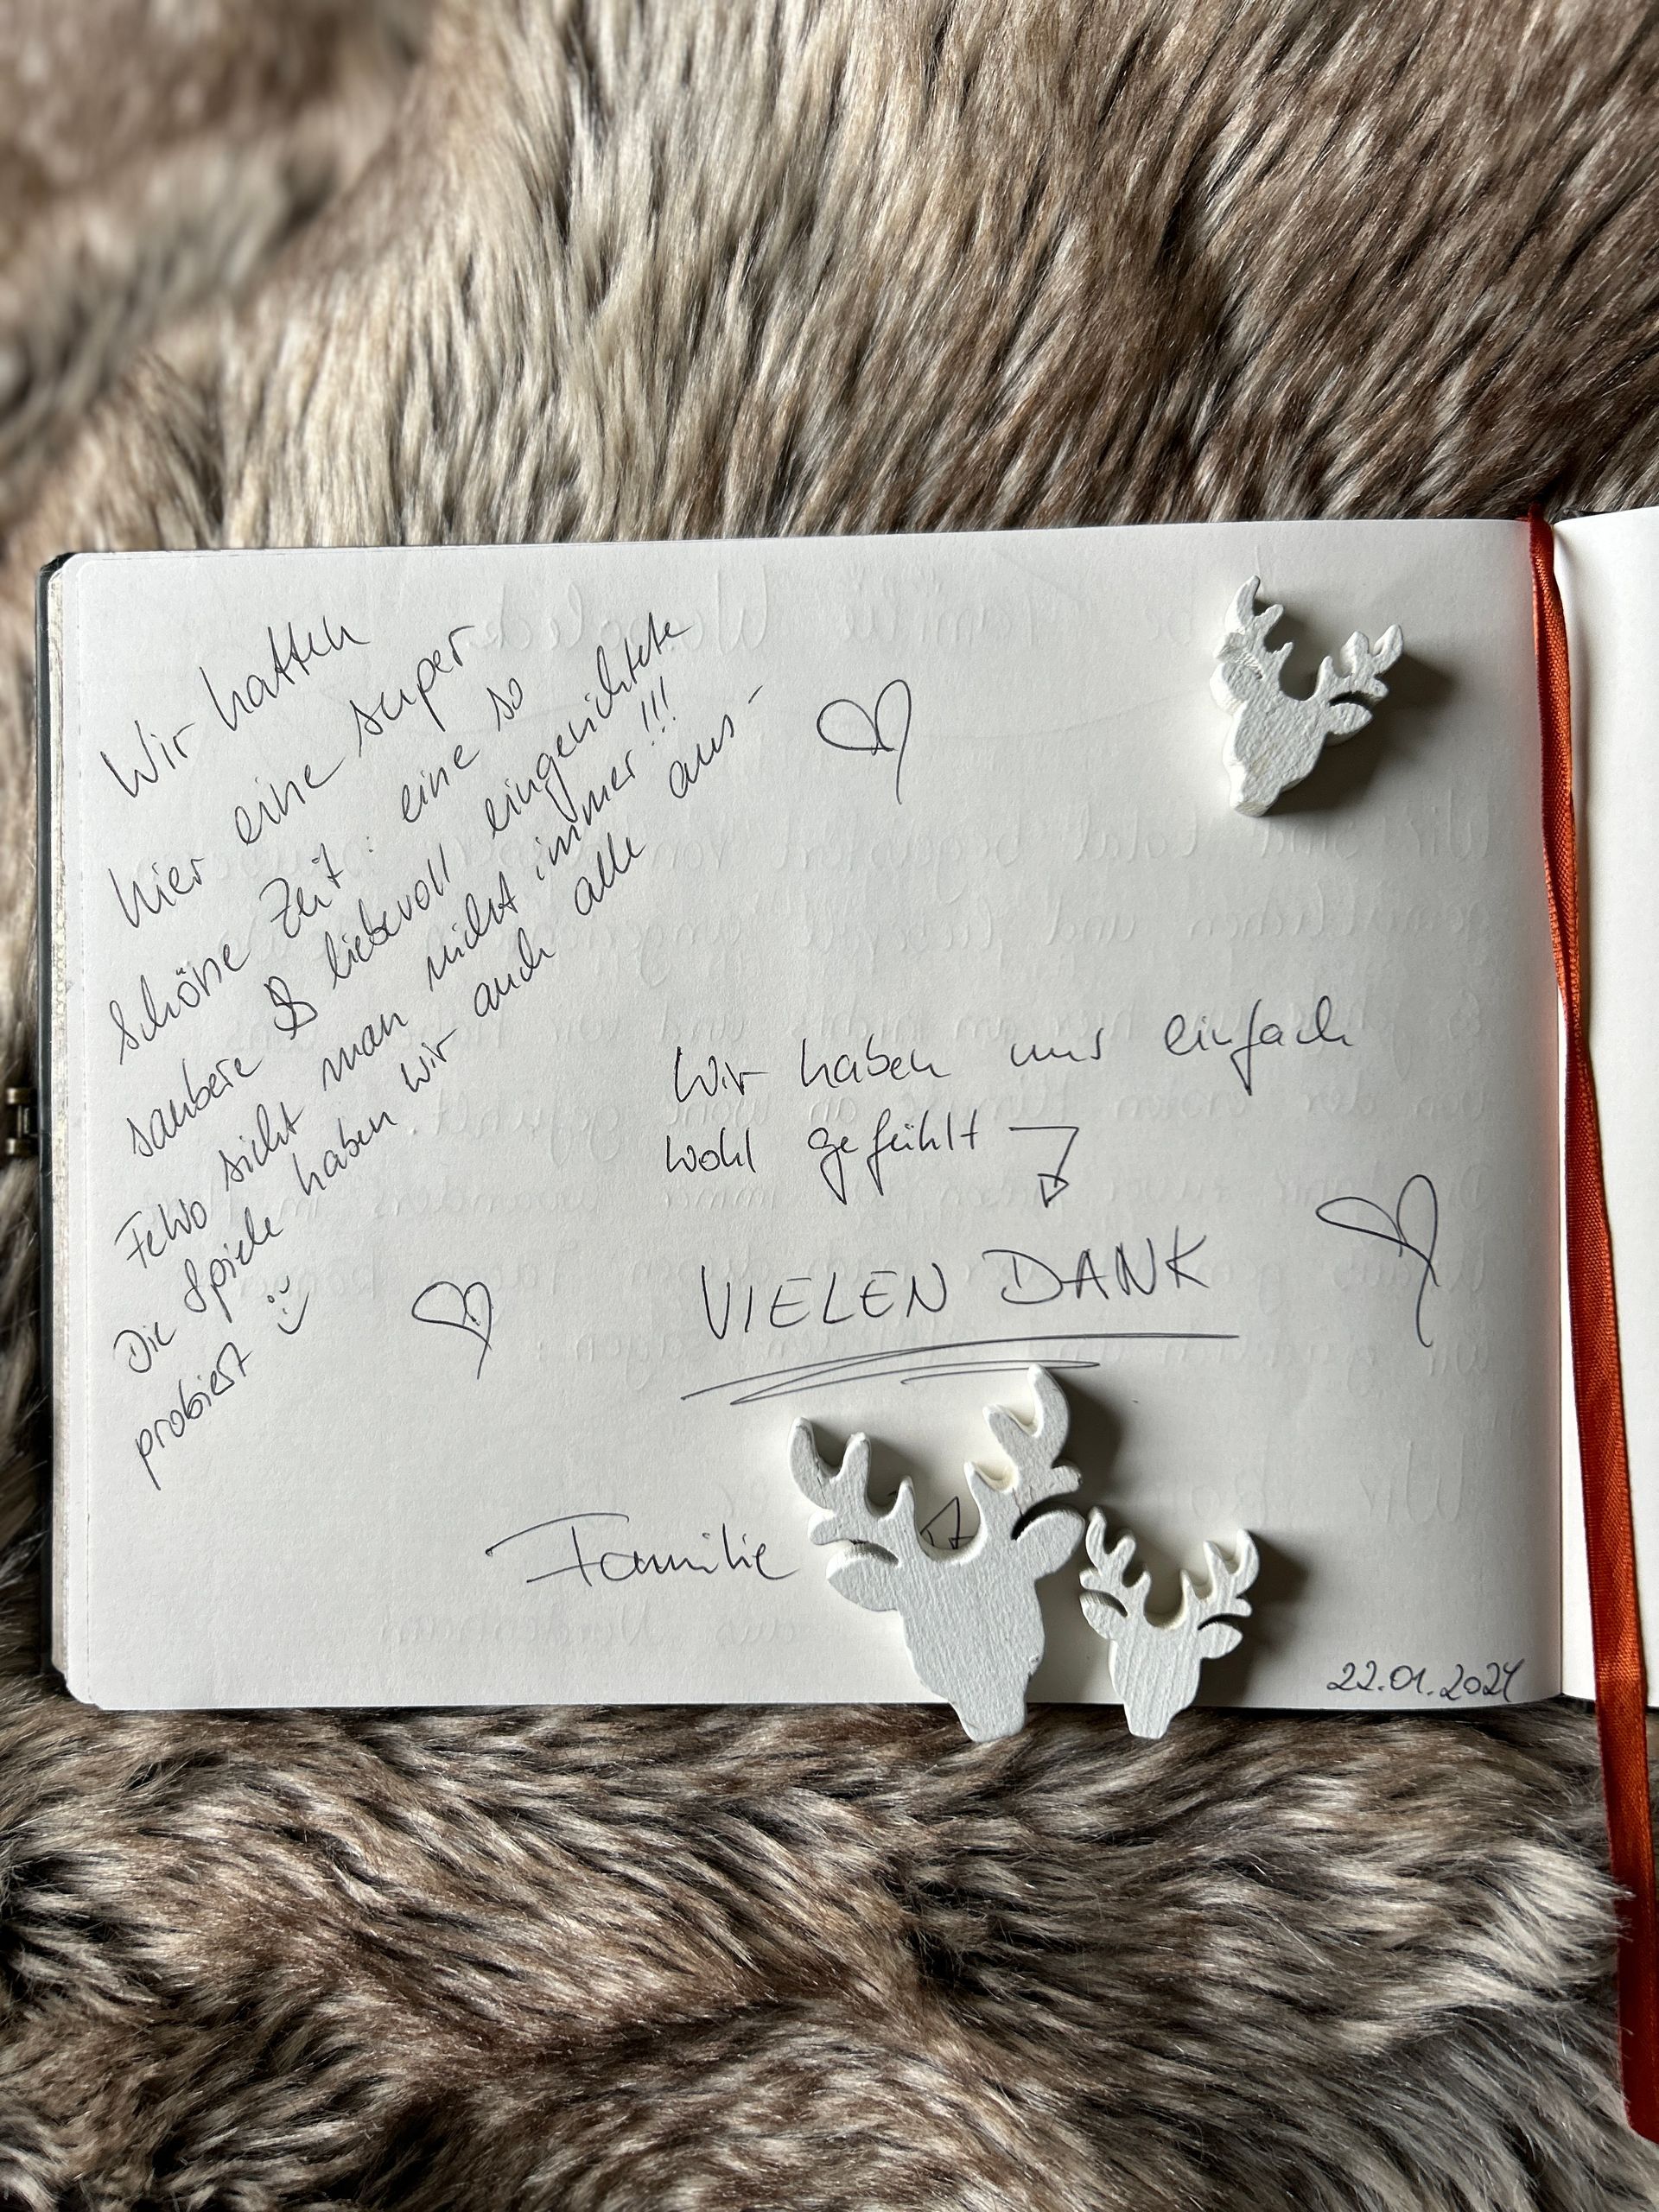 Wir hatten
hier eine super
schöne Zeit: eine so
saubere & liebevoll eingerichtete
FeWo sieht man nicht immer!!!
Die Spiele haben wir auch alle aus-
probiert :)
Wir haben uns einfach
wohl gefühlt
VIELEN DANK
Familie
22.01.2024